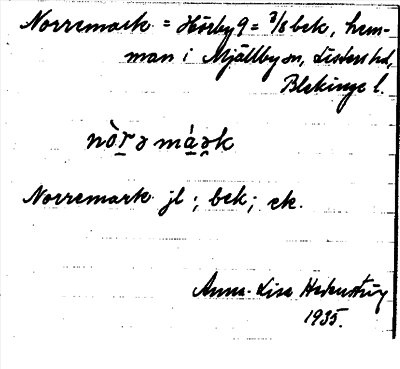 Norremark = Hörby 9 = 3/8 bek, hem-
man i Mjällby sn, Listers hd,
Blekinge l.
nòr̲ə má̲ə̯k
Norremark jl; bek; ek.
Anna-Lisa
1935.